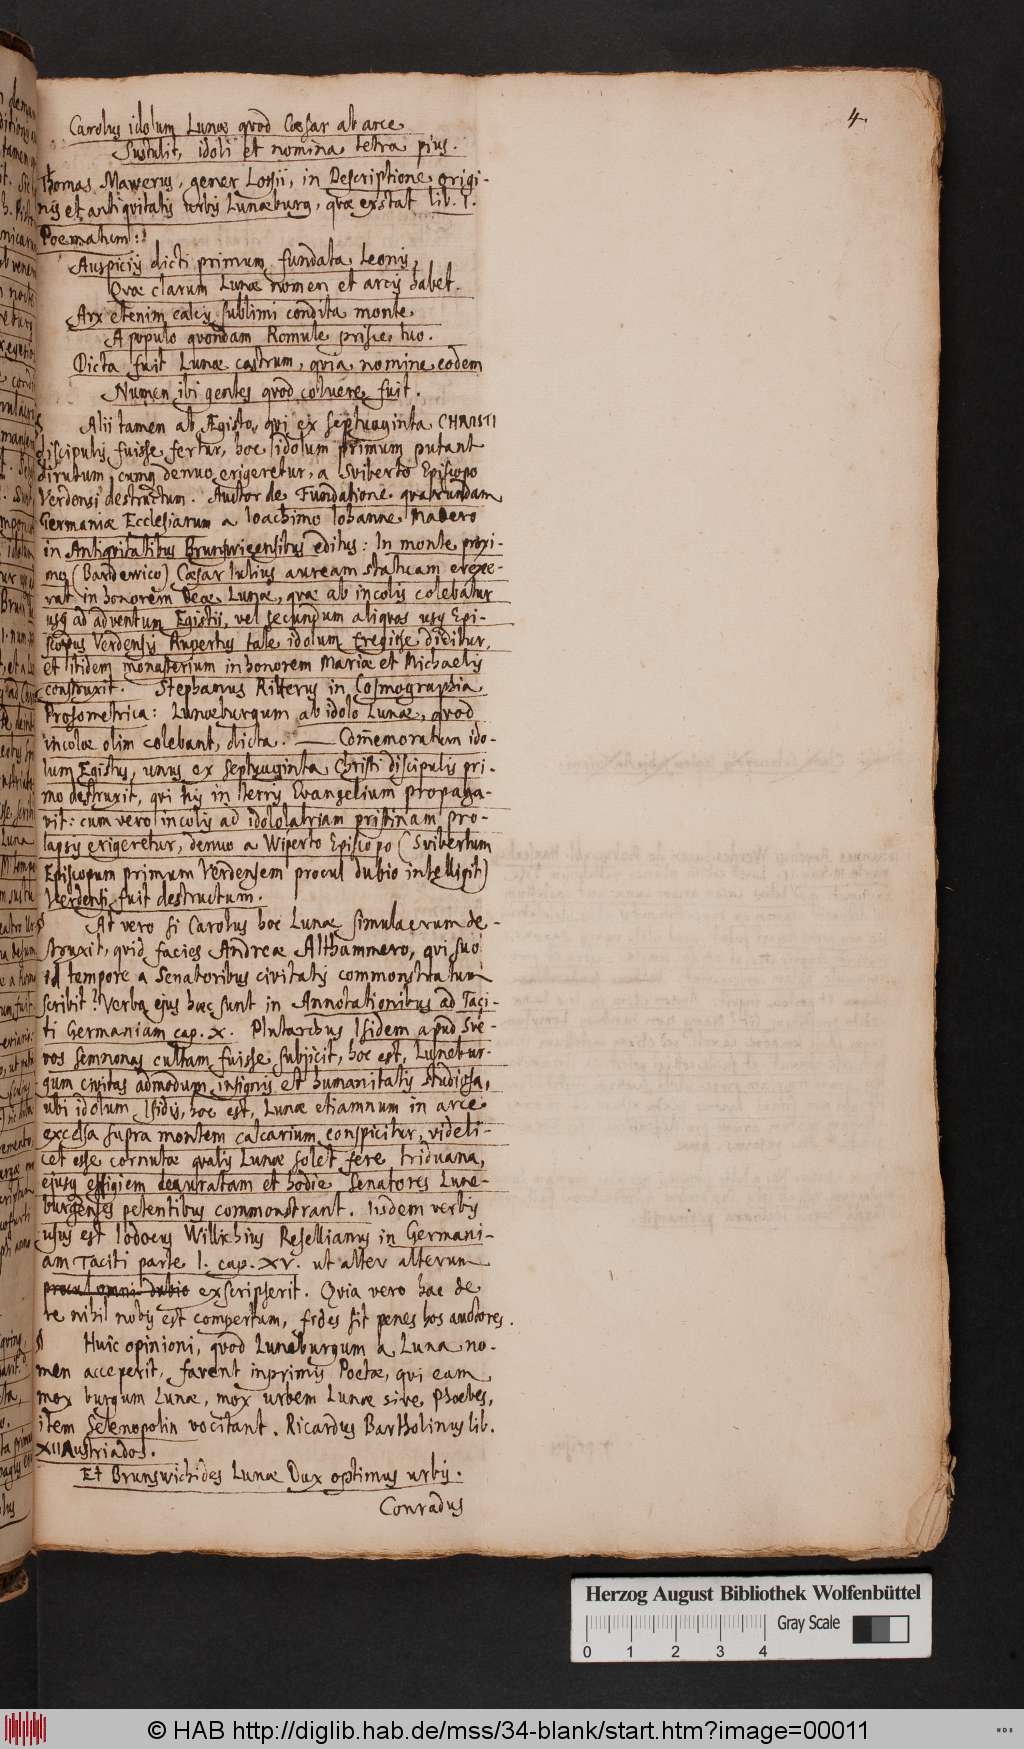 4.
Carolus idolum Lunæ quod Cæsar ab arce
Sustulit, idoli et nomina tetra pius.
Thomas Mawerus, gener Lossii, in Descriptione origi-
nis et antiquitatis urbis Lunæburg, quæ exstat lib. I.
Poematum:
Auspiciis dicti primum fundata Leonis,
Quæ clarum Lunæ nomen et arcis habet.
Arx etenim calcis sublimi condita monte
A populo quondam Romule prisce tuo.
Dicta fuit Lunæ castrum, quia nomine eodem
Numen ibi gentes quod coluere fuit.
Alii tamen ab Ægisto, qui ex septuaginta CHRISTI
discipulis fuisse fertur, hoc idolum primum putant
dirutum, cumq denuo erigeretur, a Sviberto Episcopo
Verdensi destructum. Auctor de Fundatione quarundam
Germaniæ Ecclesiarum a Ioachimo Iohanne Madero
in Antiquitatibus Brunswicensibus editus: In monte proxi-
mo (Bardewico) Cæsar Iulius auream statuam erexe-
rat in honorem Deæ Lunæ, quæ ab incolis colebatur
usq ad adventum Egistii, vel secundum aliquos usq Epi-
scopus Verdensis Rupertus tale idolum fregisse dicitur,
et itidem monasterium in honorem Mariæ et Michaelis
construxit. Stephanus Ritterus in Cosmographia
Prosometrica: Lunæburgum ab idolo Lunæ, quod
incolæ olim colebant, dicta. — Com̄emoratum ido-
lum Egistus, unus ex septuaginta Christi discipulis pri-
mo destruxit, qui his in terris Evangelium propaga-
vit: cum vero incolis ad idololatriam pristinam pro-
lapsis erigeretur, denuo a Wiperto Episcopo (Svibertum
Episcopum primum Verdensem procul dubio intelligit)
Verdensi fuit destructum.
At vero si Carolus hoc Lunæ simulacrum de-
struxit, quid facies Andreæ Althammero, qui suo
id tempore a Senatoribus civitatis commonstratum
scribit? Verba ejus hæc sunt in Annotationibus ad Taci-
ti Germaniam cap. X. Plutarchus Isidem apud Sve-
vos Semnonas cultam fuisse subjicit, hoc est, Lunebur-
gum civitas admodum insignis et humanitatis studiosa,
ubi idolum Isidis, hoc est, Lunæ etiamnum in arce
excelsa supra montem calcarium conspicitur, videli-
cet esse cornutæ qualis Lunæ solet fere triduana,
ejusq effigiem deauratam et hodie Senatores Lune-
burgenses petentibus commonstrant. Iisdem verbis
usus est Iodocus Willichius Resellianus in Germani-
am Taciti parte I. cap. XV. ut alter alterum
procul omni dubio exscripserit. Quia vero hac de
re nihil nobis est compertum, fides sit penes hos auctores.
Huic opinioni, quod Luneburgum a Luna no-
men acceperit, favent inprimis Poetæ, qui eam
mox burgum Lunæ, mox urbem Lunæ sive Phoebes,
item Selenopolin vocitant. Ricardus Bartholinus lib.
XII Austriados.
Et Brunswichides Lunæ Dux optimus urbis.
Conradus
Herzog August Bibliothek Wolfenbüttel
Gray Scale
0 1 2 3 4
© HAB http://diglib.hab.de/mss/34-blank/start.htm?image=00011